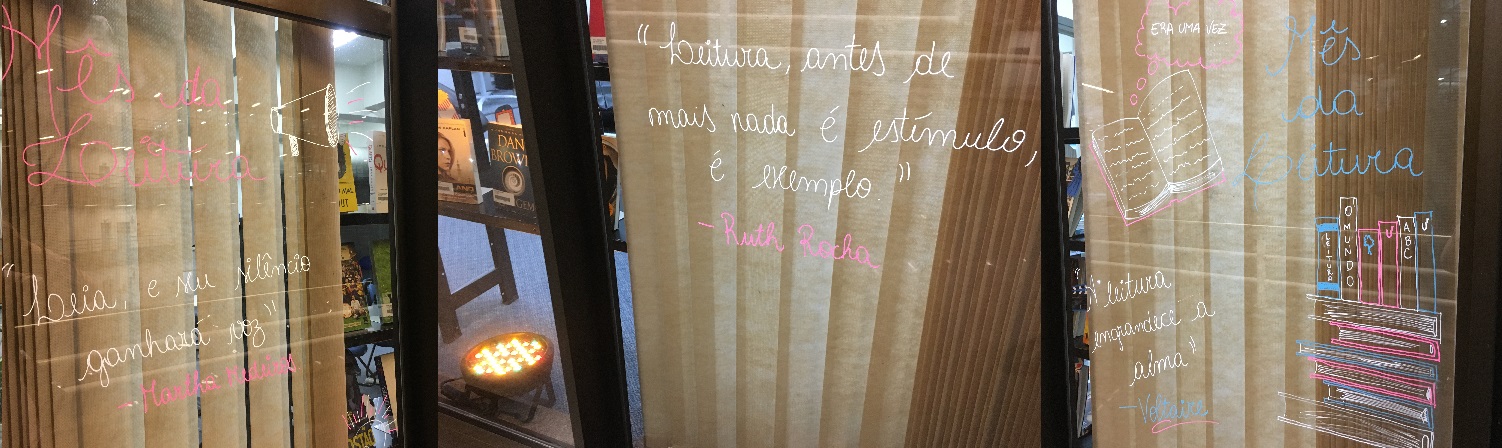 Mês da
Leitura
"Leia, e seu silêncio
ganhará voz".
- Martha Medeiros
DAN
BROWN
"Leitura, antes de
mais nada é estímulo,
é exemplo."
- Ruth Rocha
ERA UMA VEZ
Mês
da
Leitura
LEITURA
O MUNDO
ABC
"A leitura
engrandece a
alma"
- Voltaire